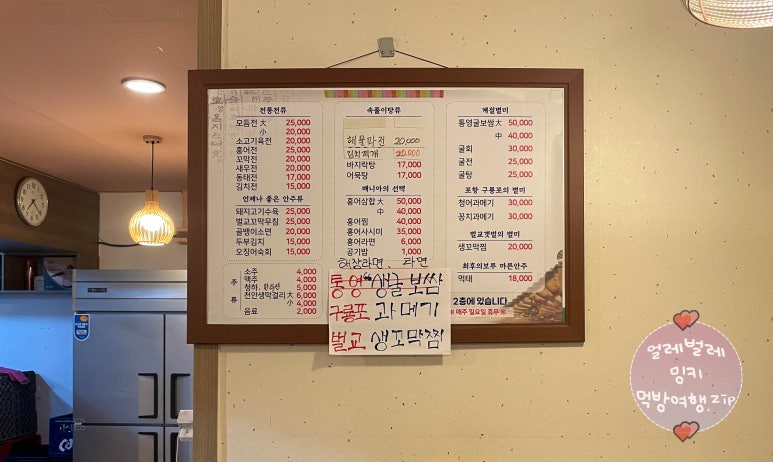 전통전류
모듬전 大 25,000
小 20,000
소고기육전 20,000
홍어전 25,000
꼬막전 20,000
새우전 20,000
동태전 17,000
김치전 15,000
언제나 좋은 안주류
돼지고기수육 25,000
벌교꼬막무침 25,000
골뱅이소면 20,000
두부김치 15,000
오징어숙회 15,000
주류
소주 4,000
맥주 4,000
청하, 한라산 5,000
천안생막걸리 大 6,000
小 4,000
음료 2,000
속풀이탕류
해물파전 20,000
김치찌개 20,000
바지락탕 17,000
어묵탕 17,000
매니아의 선택
홍어삼합 大 50,000
中 40,000
홍어찜 40,000
홍어사시미 35,000
홍어라면 6,000
공기밥 1,000
해장라면, 라면
통영 생굴보쌈
구룡포 과메기
벌교 생꼬막찜
계절별미
통영굴보쌈 大 50,000
中 40,000
굴회 30,000
굴전 25,000
굴탕 25,000
포항 구룡포의 별미
청어과메기 30,000
꽁치과메기 30,000
벌교갯벌의 별미
생꼬막찜 20,000
최후의보루 마른안주
먹태 18,000
2층에 있습니다
※ 매주 일요일 휴무 ※
얼레벌레
밍키
먹방여행.zip